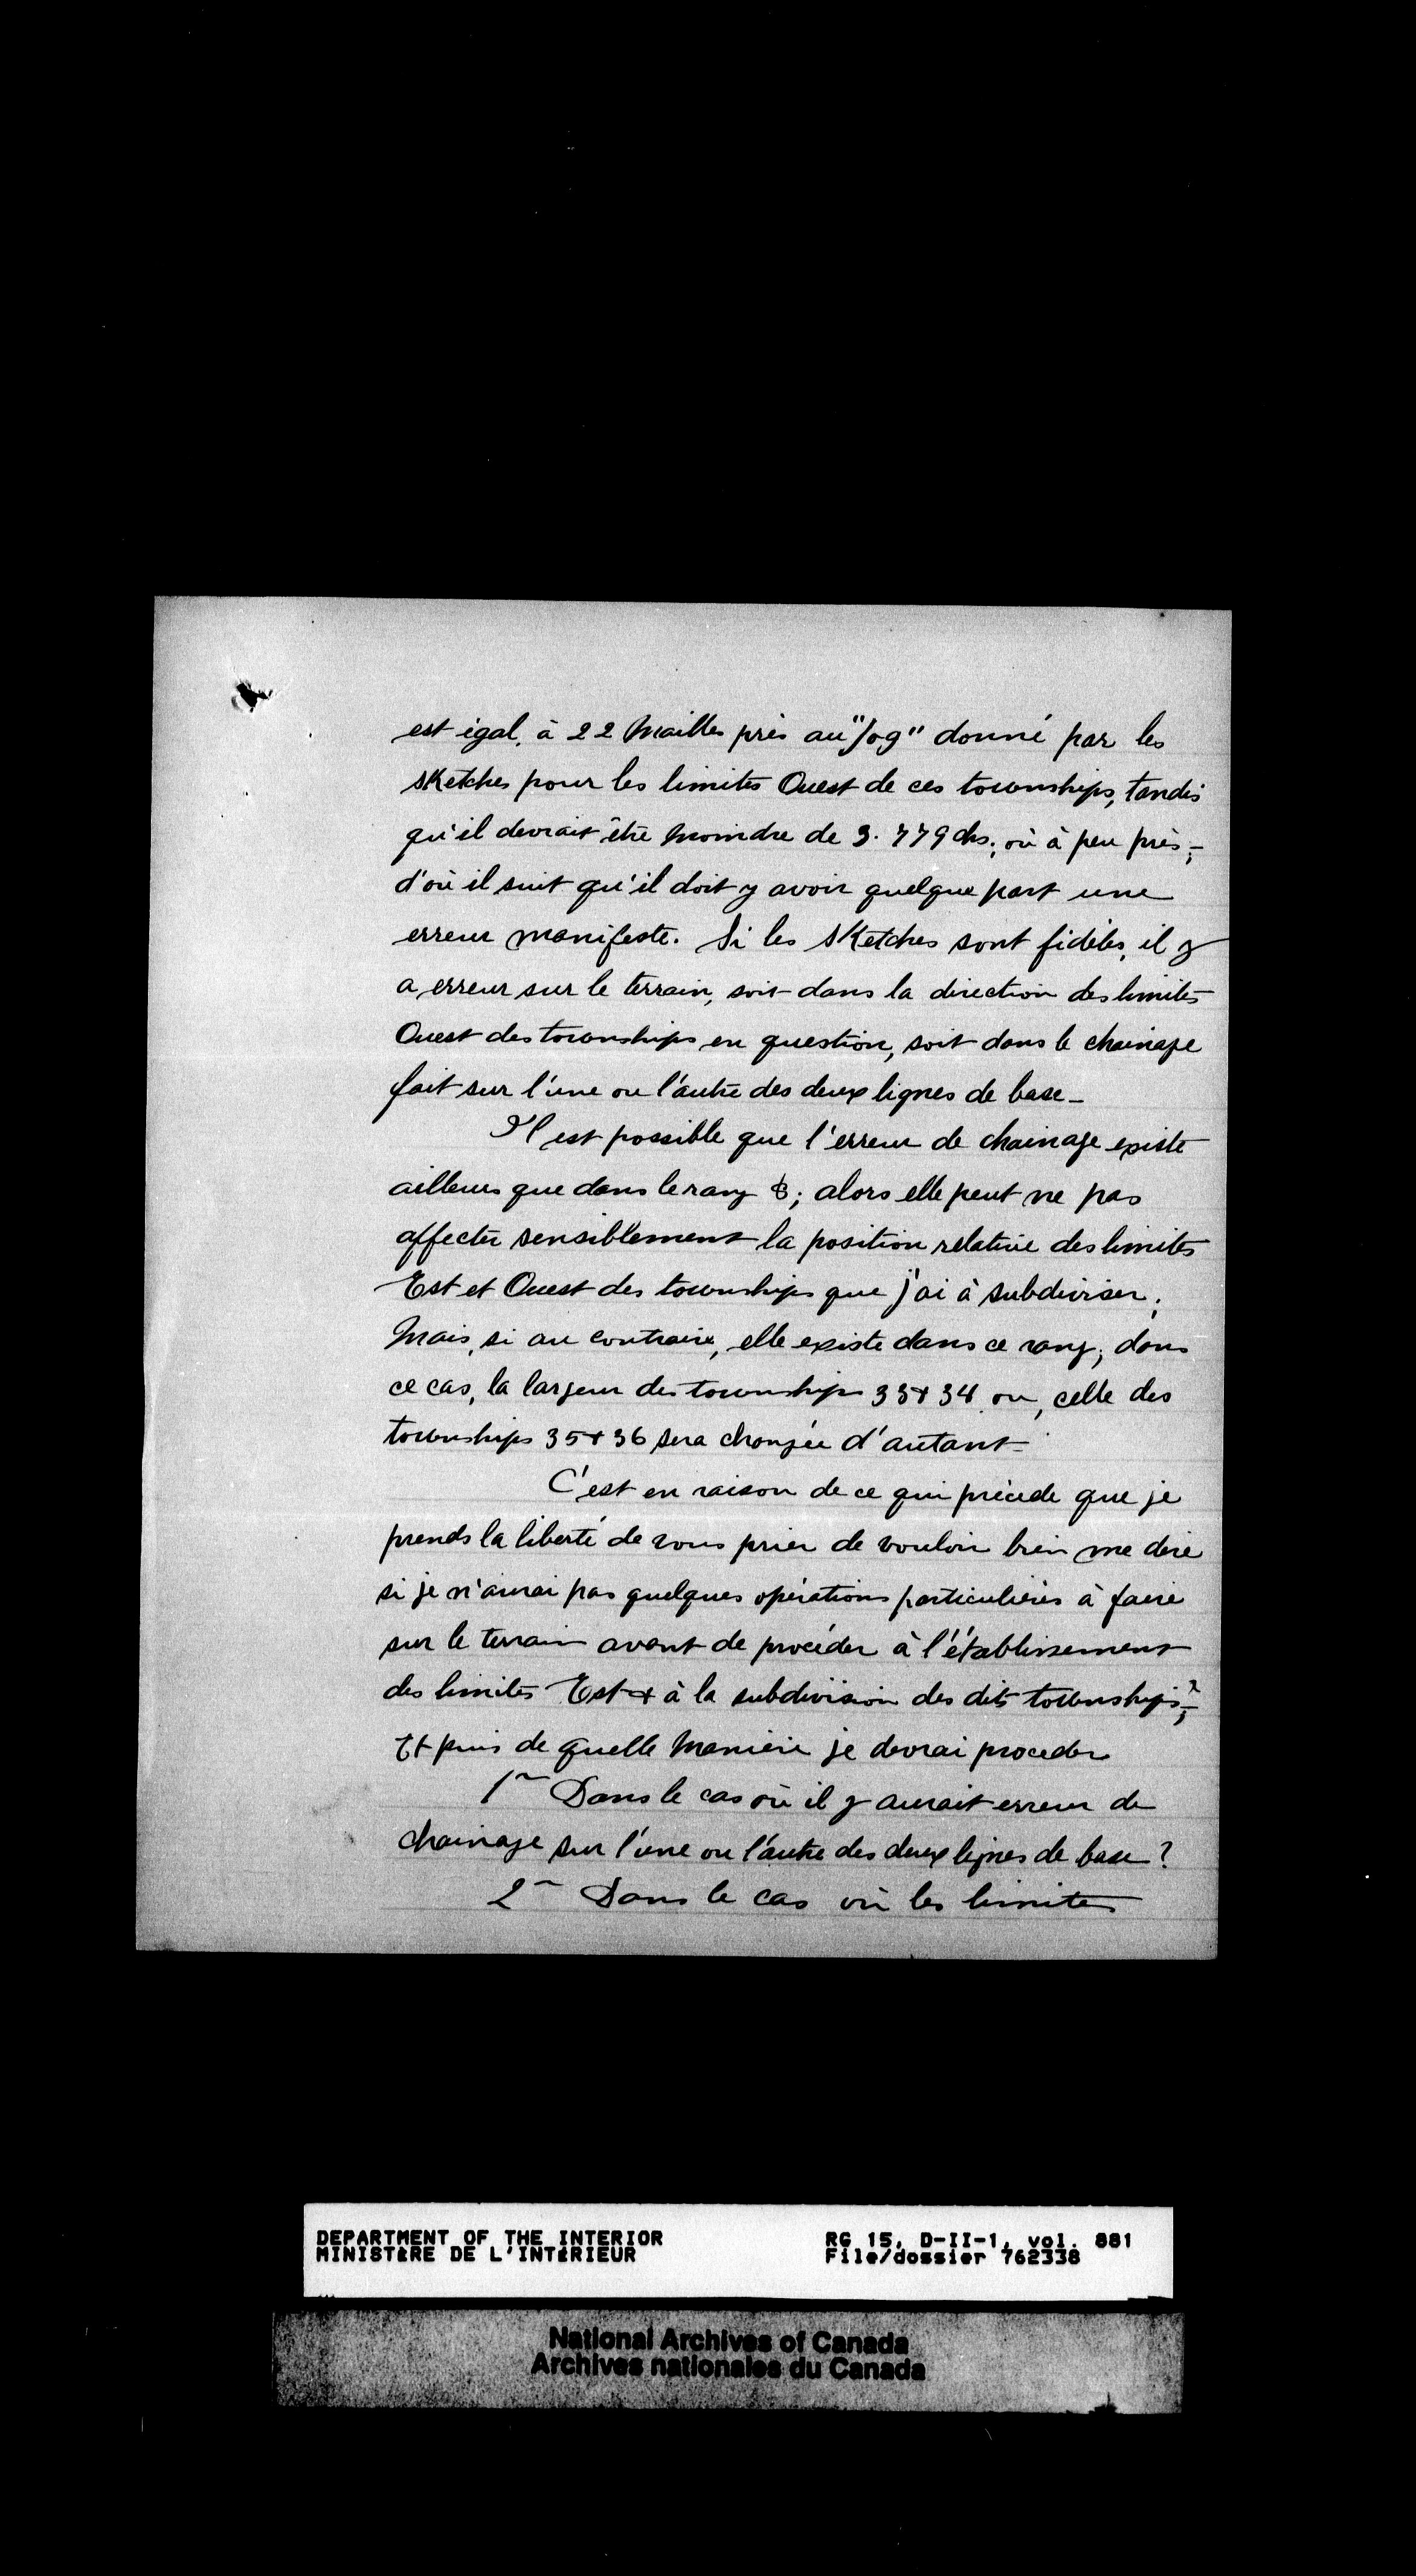 est égal, à 22 Mailles près au "Jog" donné par les
sketches pour les limites Ouest de ces townships, tandis
qu'il devrait être moindre de 3.779 chs, ou à peu près;-
d'où il suit qu'il doit y avoir quelque part une
erreur manifeste. Si les sketches sont fidèles, il y
a erreur sur le terrain, soit dans la direction des limites
Ouest des townships en question, soit dans le chainage
fait sur l'une ou l'autre des deux lignes de base -
Il est possible que l'erreur de chainage existe
ailleurs que dans le rang 8; alors elle peut ne pas
affecter sensiblement la position relative des limites
Est et Ouest des townships que j'ai à subdiviser.
Mais, si au contraire, elle existe dans ce rang; dans
ce cas, la largeur des townships 33 & 34 ou, celle des
townships 35 & 36 sera changée d'autant -
C'est en raison de ce qui précède que je
prends la liberté de vous prier de vouloir bien me dire
si je n'aurai pas quelques opérations particulières à faire
sur le terrain avant de procéder à l'établissement
des limites Est & à la subdivision des dits townships?;
Et puis de quelle manière je devrai proceder
1~ Dans le cas où il y aurait erreur de
chainage sur l'une ou l'autre des deux lignes de base?
2~ Dans le cas où les limites
DEPARTMENT OF THE INTERIOR RG 15, D-II-1, vol. 881
MINISTÈRE DE L'INTÉRIEUR File/dossier 762338
National Archives of Canada
Archives nationales du Canada